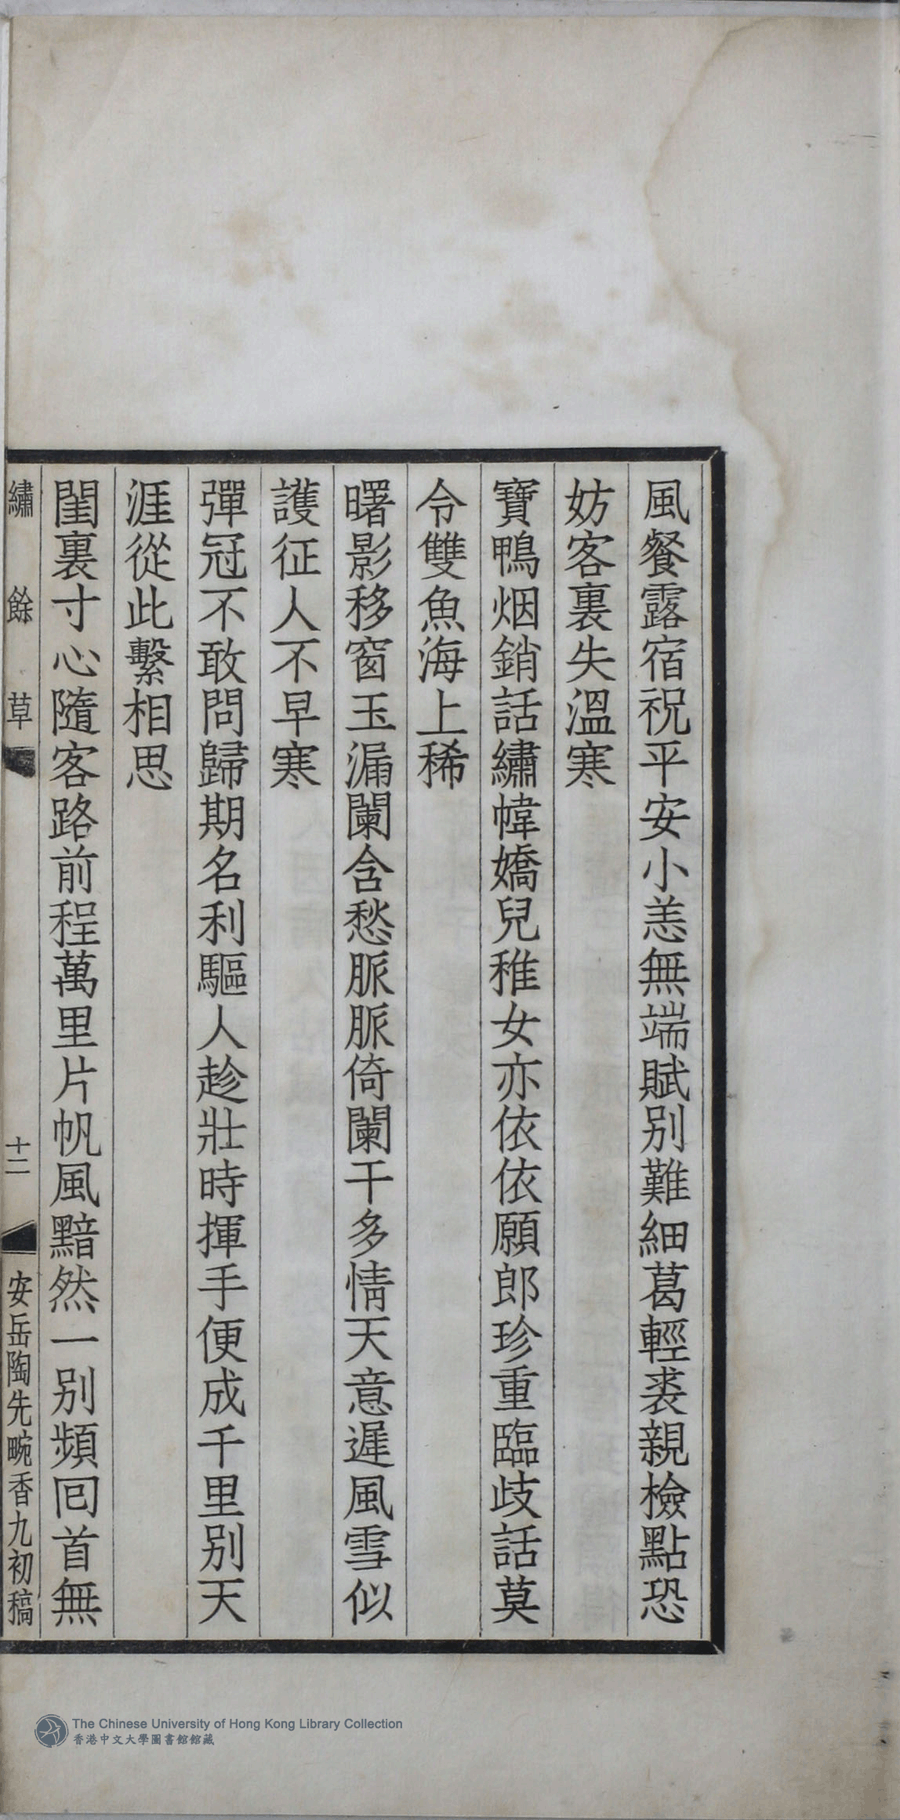 風餐露宿祝平安小恙無端賦别難細葛輕裘親檢點恐
妨客裏失溫寒
寶鴨烟銷話繡幃嬌兒稚女亦依依願郎珍重臨歧話莫
令雙魚海上稀
曙影移窗玉漏闌含愁脈脈倚闌干多情天意遲風雪似
護征人不早寒
彈冠不敢問歸期名利驅人趁壯時揮手便成千里别天
涯從此繫相思
閨裏寸心隨客路前程萬里片帆風黯然一别頻回首無
繡餘草
十二
安岳陶先畹香九初稿
The Chinese University of Hong Kong Library Collection
香港中文大學圖書館館藏